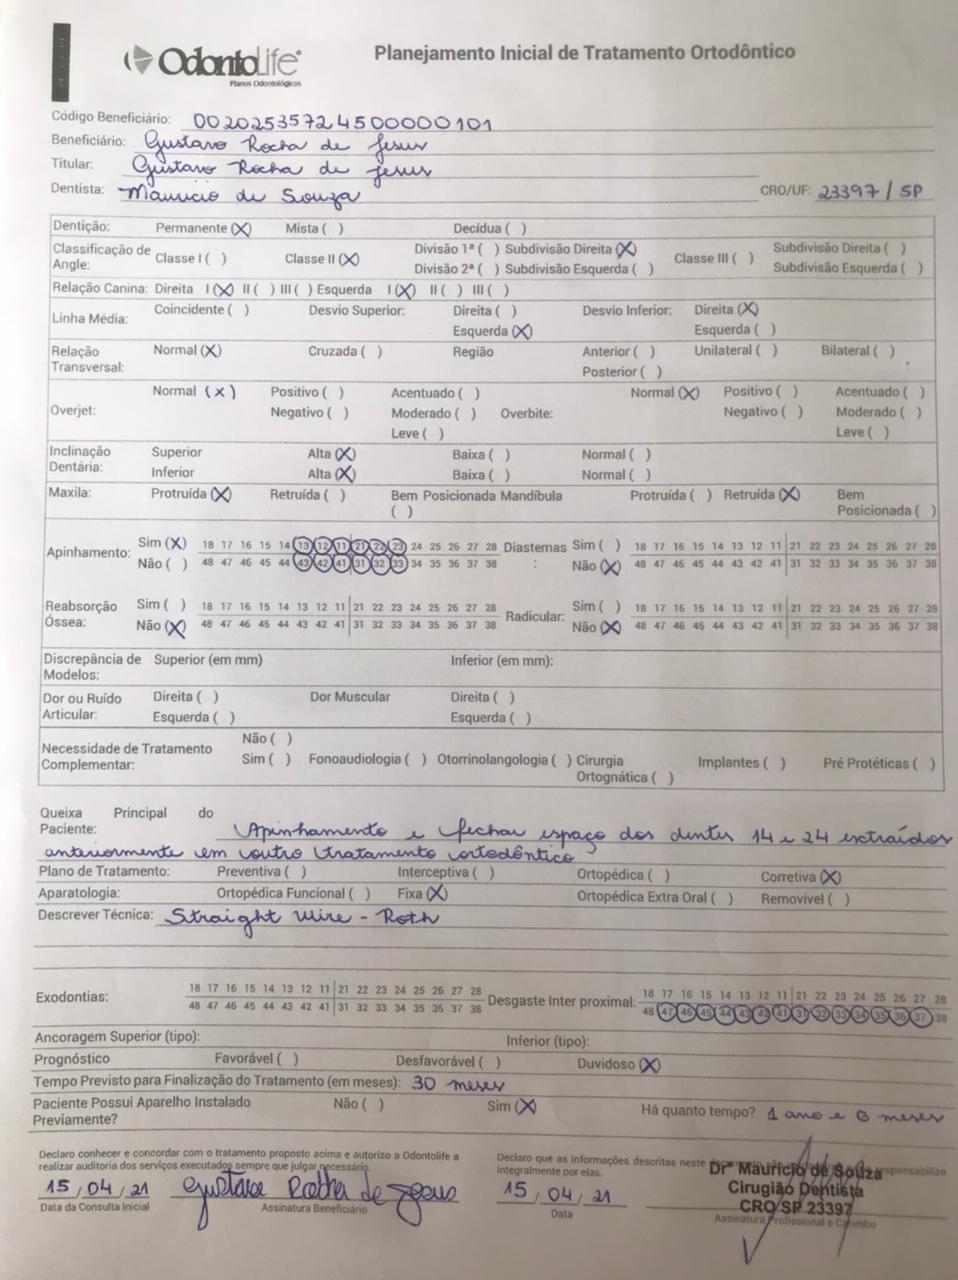 OdontoLife
Planos Odontológicos
Planejamento Inicial de Tratamento Ortodôntico
Código Beneficiário: 00202535724500000101
Beneficiário: Gustavo Rocha de Jesus
Titular: Gustavo Rocha de Jesus
Dentista: Mauricio de Souza CRO/UF: 23397/SP
Dentição: Permanente (X) Mista ( ) Decídua ( )
Classificação de Angle: Classe I ( ) Classe II (X) Divisão 1ª ( ) Subdivisão Direita (X) Classe III ( ) Subdivisão Direita ( )
Divisão 2ª ( ) Subdivisão Esquerda ( ) Subdivisão Esquerda ( )
Relação Canina: Direita I (X) II ( ) III ( ) Esquerda I (X) II ( ) III ( )
Linha Média: Coincidente ( ) Desvio Superior: Direita ( ) Desvio Inferior: Direita (X)
Esquerda (X) Esquerda ( )
Relação Transversal: Normal (X) Cruzada ( ) Região Anterior ( ) Unilateral ( ) Bilateral ( )
Posterior ( )
Overjet: Normal (X) Positivo ( ) Acentuado ( ) Overbite: Normal (X) Positivo ( ) Acentuado ( )
Negativo ( ) Moderado ( ) Negativo ( ) Moderado ( )
Leve ( ) Leve ( )
Inclinação Dentária: Superior Alta (X) Baixa ( ) Normal ( )
Inferior Alta (X) Baixa ( ) Normal ( )
Maxila: Protruída (X) Retruída ( ) Bem Posicionada ( ) Mandíbula Protruída ( ) Retruída (X) Bem Posicionada ( )
Apinhamento: Sim (X) 18 17 16 15 14 13 12 11 21 22 23 24 25 26 27 28 Diastemas: Sim ( ) 18 17 16 15 14 13 12 11 21 22 23 24 25 26 27 28
Não ( ) 48 47 46 45 44 43 42 41 31 32 33 34 35 36 37 38 Não (X) 48 47 46 45 44 43 42 41 31 32 33 34 35 36 37 38
Reabsorção Óssea: Sim ( ) 18 17 16 15 14 13 12 11 21 22 23 24 25 26 27 28 Radicular: Sim ( ) 18 17 16 15 14 13 12 11 21 22 23 24 25 26 27 28
Não (X) 48 47 46 45 44 43 42 41 31 32 33 34 35 36 37 38 Não (X) 48 47 46 45 44 43 42 41 31 32 33 34 35 36 37 38
Discrepância de Modelos: Superior (em mm) Inferior (em mm):
Dor ou Ruído Articular: Direita ( ) Dor Muscular Direita ( )
Esquerda ( ) Esquerda ( )
Necessidade de Tratamento Complementar: Não ( )
Sim ( ) Fonoaudiologia ( ) Otorrinolangologia ( ) Cirurgia Ortognática ( ) Implantes ( ) Pré Protéticas ( )
Queixa Principal do
Paciente: Apinhamento e fechar espaço dos dentes 14 e 24 extraídos
anteriormente em outro tratamento ortodôntico
Plano de Tratamento: Preventiva ( ) Interceptiva ( ) Ortopédica ( ) Corretiva (X)
Aparatologia: Ortopédica Funcional ( ) Fixa (X) Ortopédica Extra Oral ( ) Removível ( )
Descrever Técnica: Straight Wire - Roth
Exodontias: 18 17 16 15 14 13 12 11 21 22 23 24 25 26 27 28 Desgaste Inter proximal: 18 17 16 15 14 13 12 11 21 22 23 24 25 26 27 28
48 47 46 45 44 43 42 41 31 32 33 34 35 36 37 38 48 47 46 45 44 43 42 41 31 32 33 34 35 36 37 38
Ancoragem Superior (tipo): Inferior (tipo):
Prognóstico Favorável ( ) Desfavorável ( ) Duvidoso (X)
Tempo Previsto para Finalização do Tratamento (em meses): 30 meses
Paciente Possui Aparelho Instalado Previamente? Não ( ) Sim (X) Há quanto tempo? 1 ano e 8 meses
Declaro conhecer e concordar com o tratamento proposto acima e autorizo a Odontolife a
realizar auditoria dos serviços executados sempre que julgar necessário.
15/04/21 Gustavo Rocha de Jesus
Data da Consulta Inicial Assinatura Beneficiário
Declaro que as informações descritas neste responsabilizo
integralmente por elas.
15/04/21
Data
Drº Mauricio de Souza
Cirugião Dentista
CRO/SP 23397
Assinatura Profissional e Carimbo